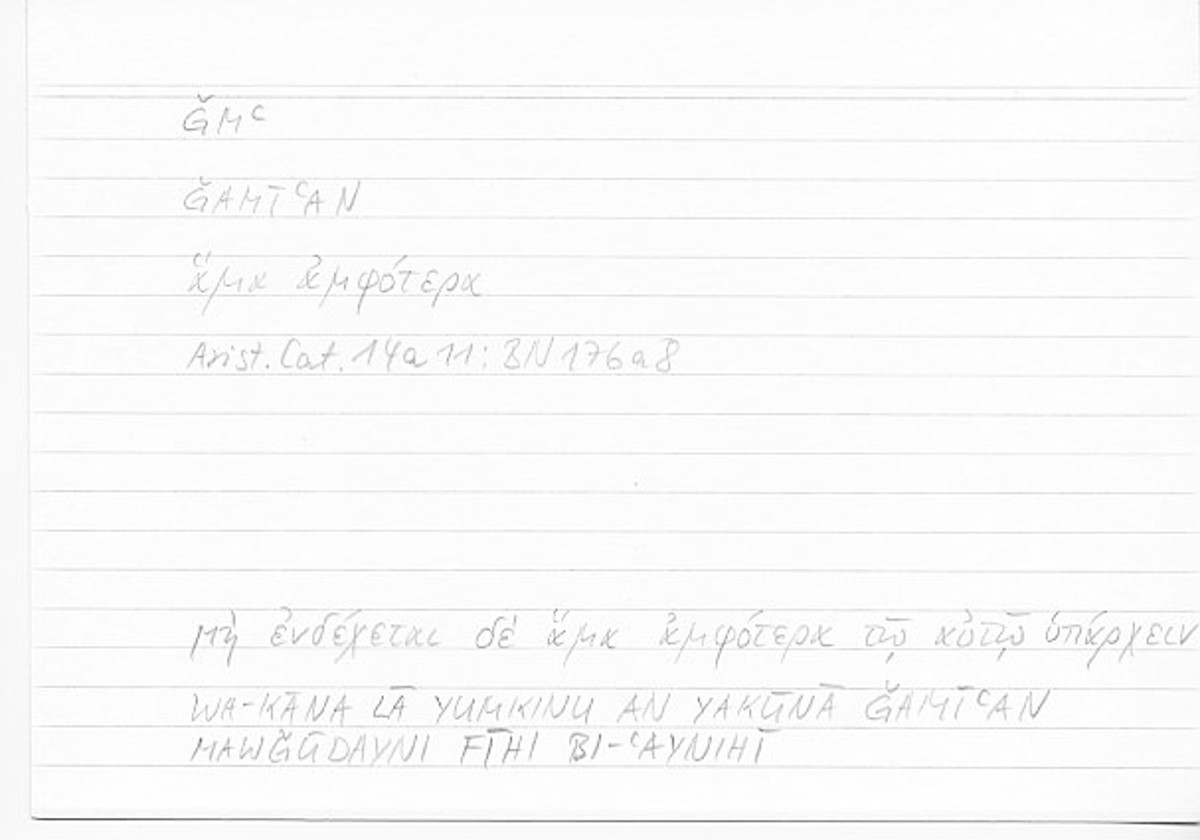 ǦMʿ
ǦAMĪʿAN
ἅμα ἀμφότερα
Arist. Cat. 14a 11: BN 176a8
μὴ ἐνδέχεται δέ ἅμα ἀμφότερα τῷ αὐτῷ ὑπάρχειν
WA-KĀNA LĀ YUMKINU AN YAKŪNĀ ǦAMĪʿAN
MAWǦŪDAYNI FĪHI BI-ʿAYNIHĪ